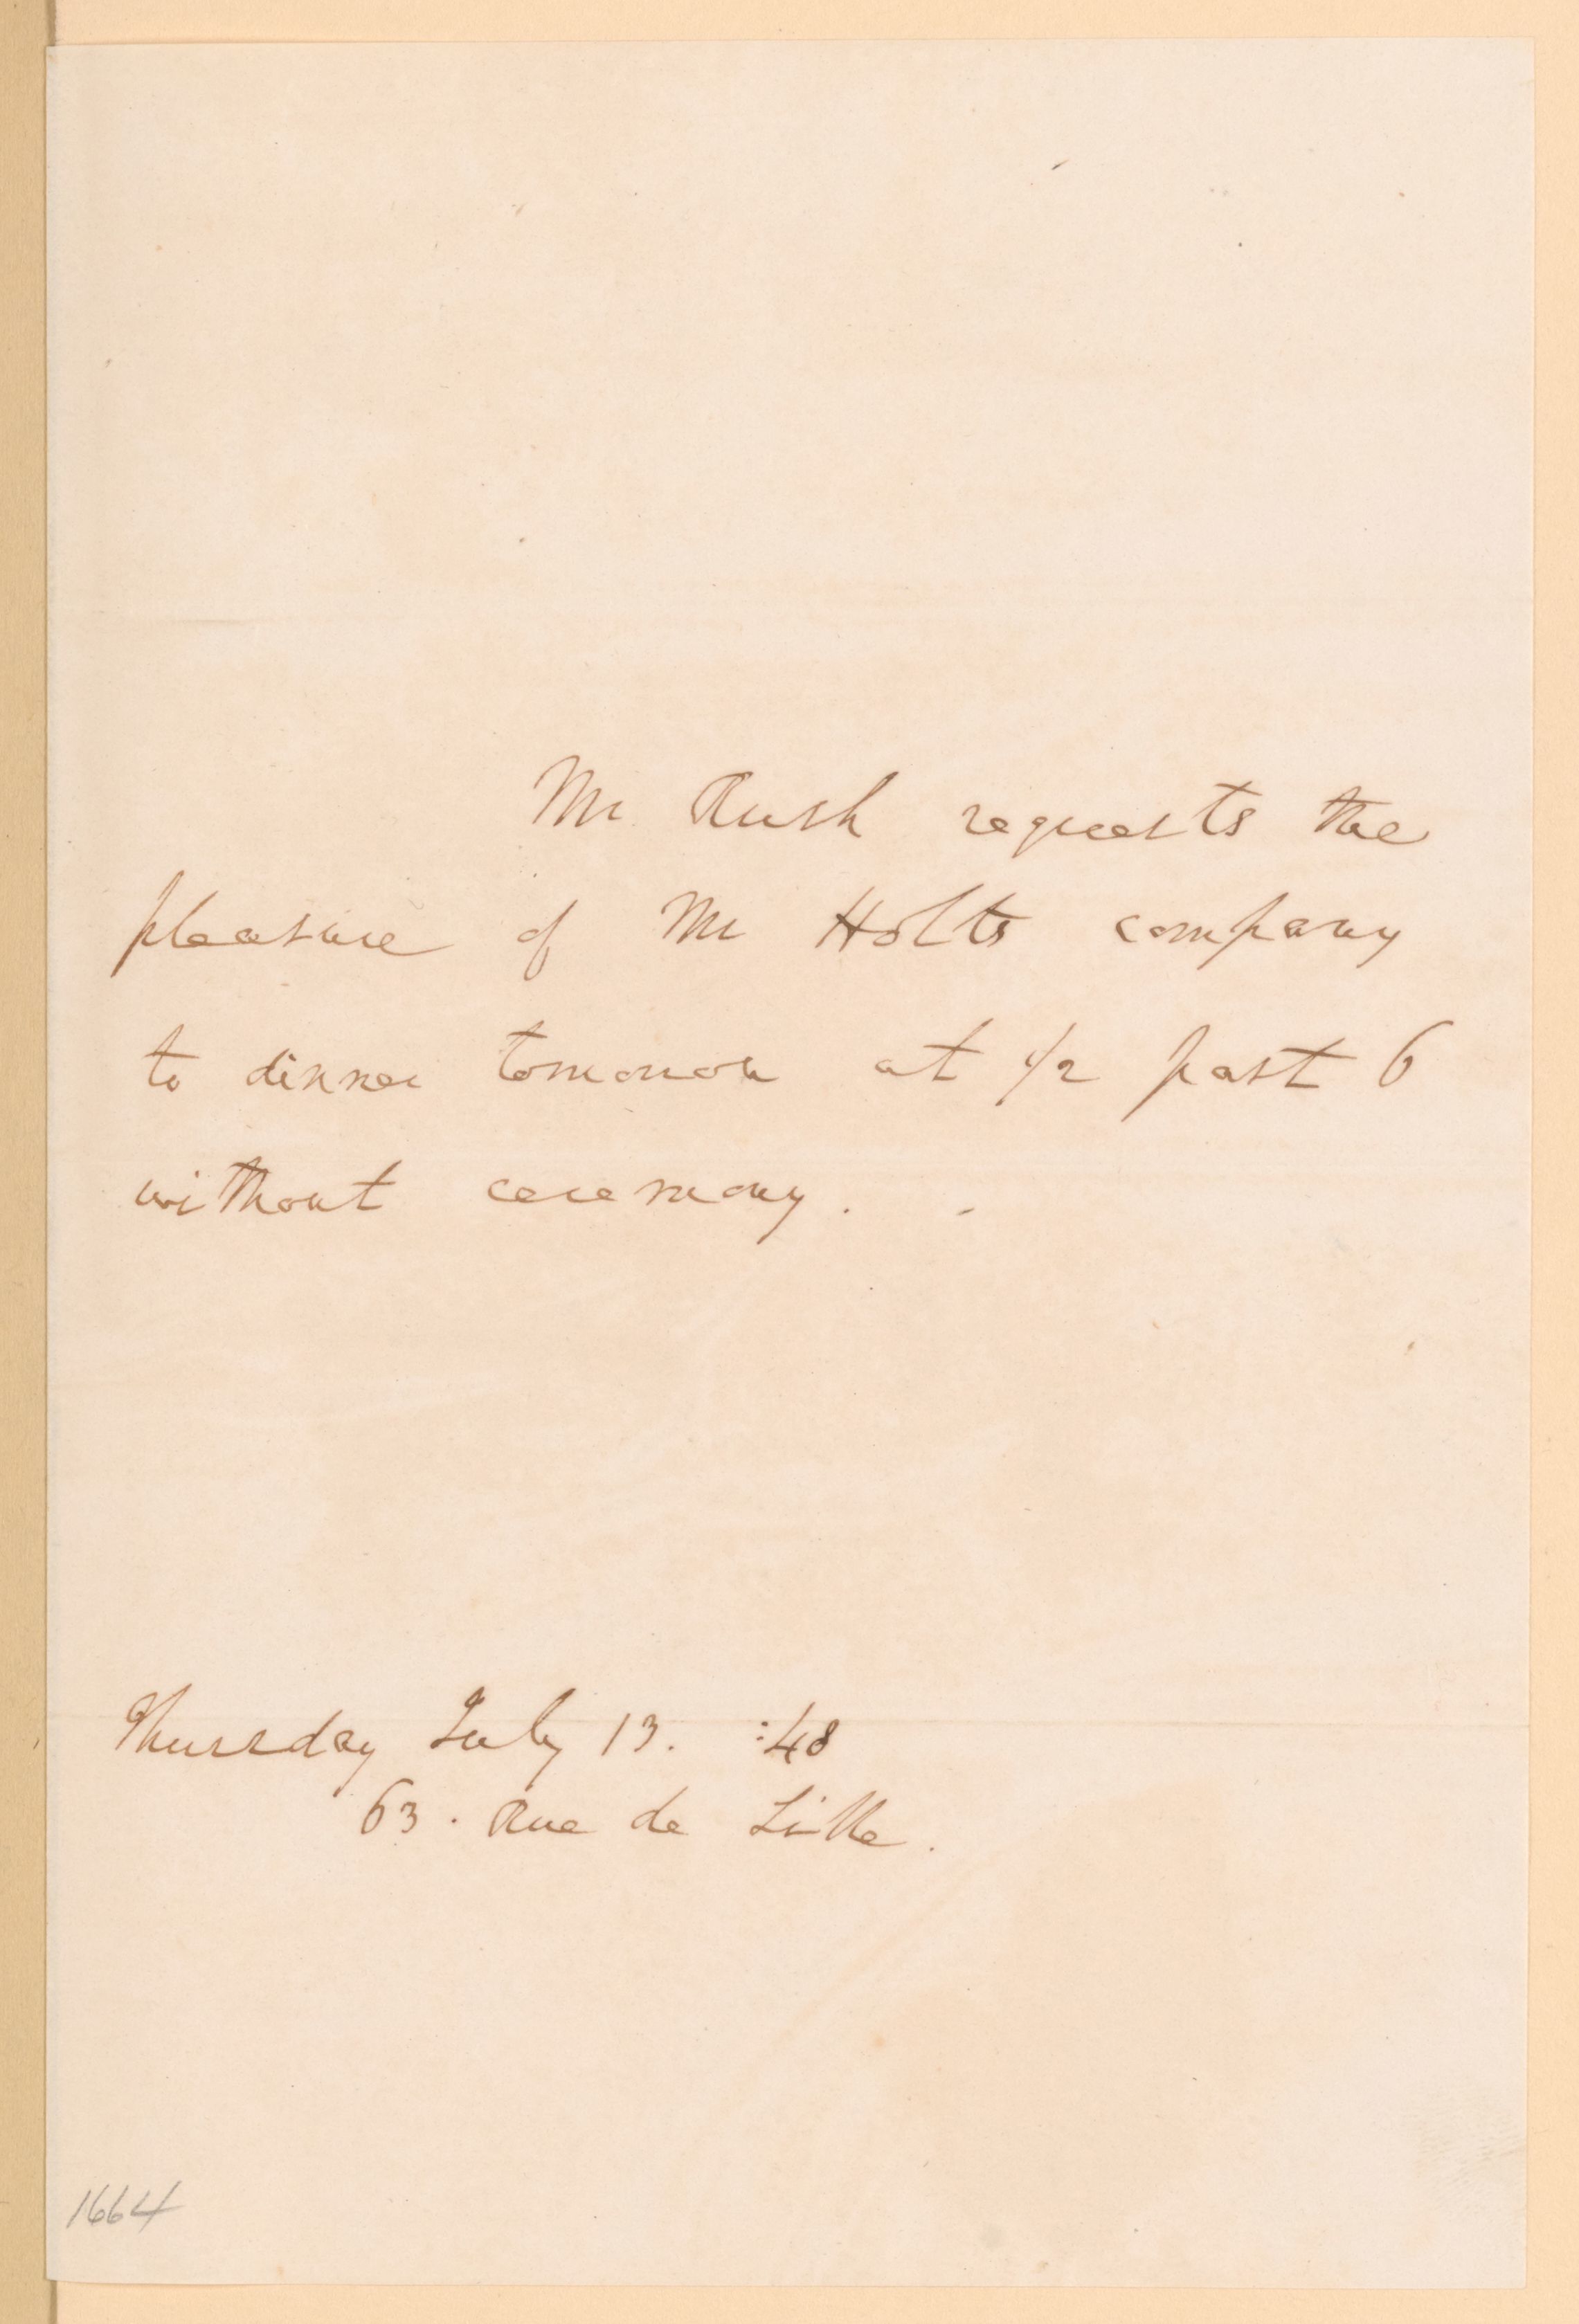 Mr Rush requests the
pleasure of Mr Holts company
to dinner tomorrow at 1/2 past 6
without ceremony.
Thursday July 13. :48
63. Rue de Lille.
1664